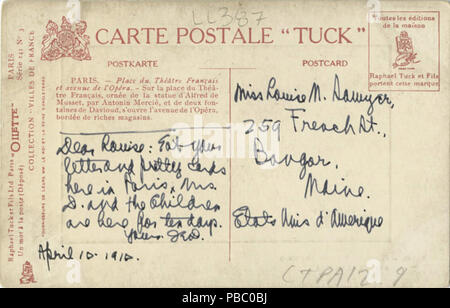 LL387
CARTE POSTALE "TUCK"
POSTKARTE
POSTCARD
Toutes les éditions de la maison
Raphael Tuck et Fils
portent cette marque
PARIS. — Place du Théâtre Français
et avenue de l'Opéra. — Sur la place du Théâ-
tre Français, ornée de la statue d'Alfred de
Musset, par Antonin Mercié, et de deux fon-
taines de Davioud, s'ouvre l'avenue de l'Opéra,
bordée de riches magasins.
Dear Louise: Got your
letter and pretty cards
here in Paris. Mrs
D. and the Children
are here for ten days.
Yours
April 10. 1910.
Miss Louise M. Sawyer,
259 French St.,
Bangor,
Maine.
Etats Unis d'Amerique
PARIS
Série 141 No 3
COLLECTION "VILLES DE FRANCE"
"OILETTE"
Raphael Tuck et Fils Ltd Paris
Un mot à la poste (Déposé)
alamy
Image ID: PBC0BJ
www.alamy.com